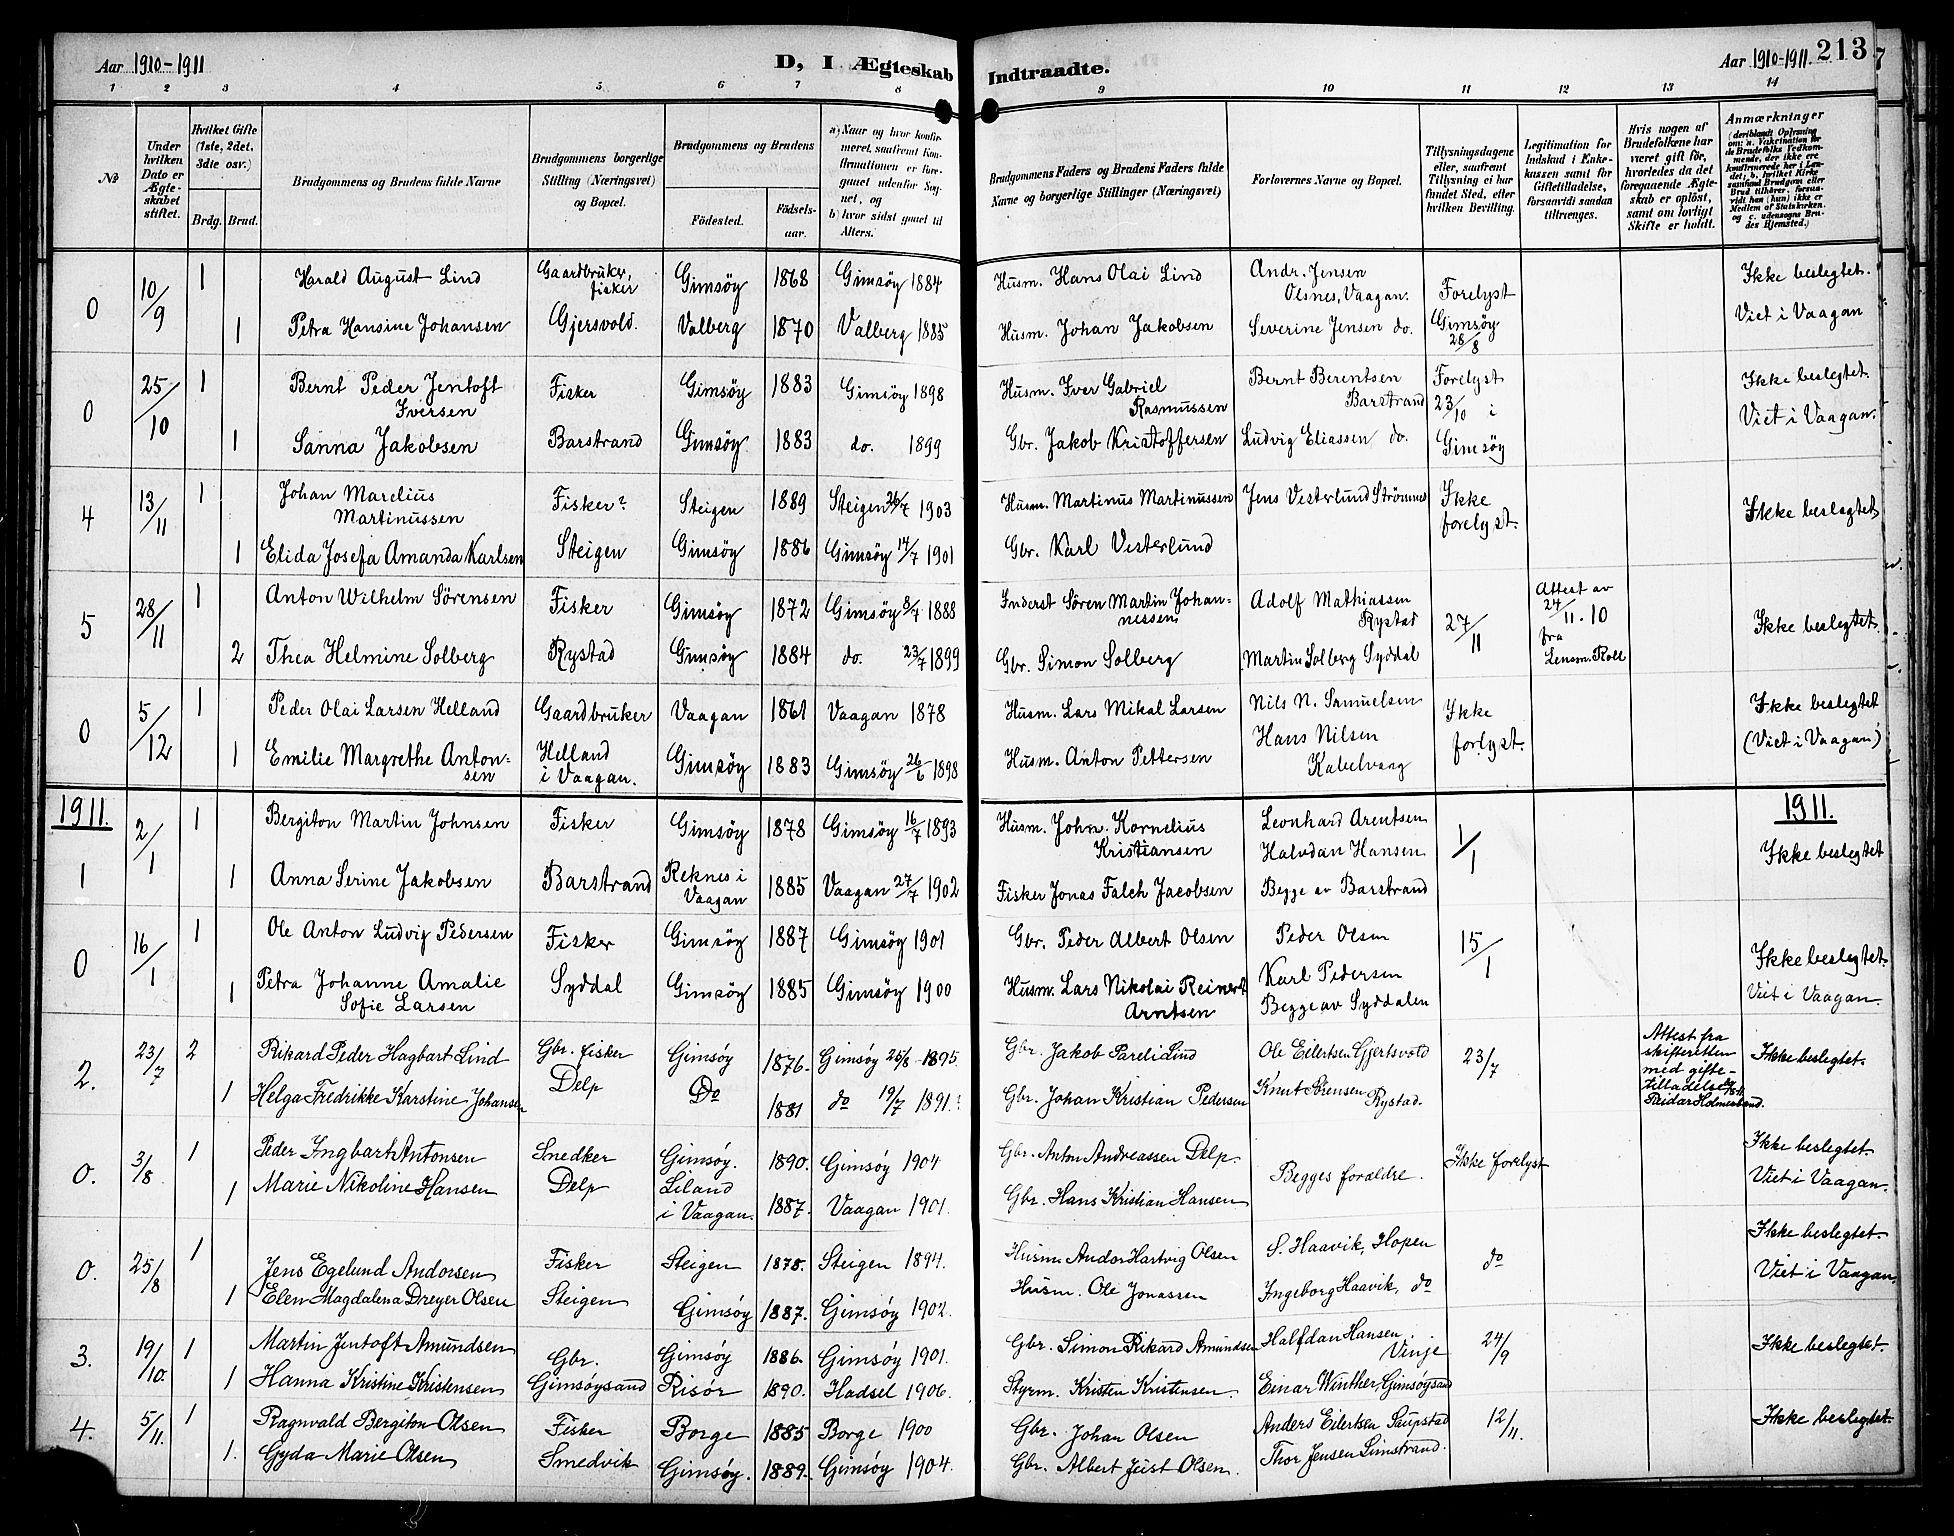 Aar 1910-1911
D, I Ægteskab
Indtraadte.
Aar 1910-1911. 213
1 2 3 4 5 6 7 8 9 10 11 12 13 14
No
Under hvilken Dato er Ægteskabet stiftet.
Hvilket Gifte (1ste, 2det, 3die osv.)
Brdg. Brud.
Brudgommens og Brudens fulde Navne
Brudgommens borgerlige Stilling (Næringsvei) og Bopæl.
Brudgommens og Brudens
Födested.
Födselsaar.
a) Naar og hvor konfirmeret, saafremt Konfirmationen er foregaaet udenfor Sognet, og
b) hvor sidst gaaet til Alters.
Brudgommens Faders og Brudens Faders fulde Navne og borgerlige Stillinger (Næringsvei)
Forlovernes Navne og Bopæl.
Tillysningsdagene eller, saafremt Tillysning ei har fundet Sted, efter hvilken Bevilling.
Legitimation for Indskud i Enkekassen samt for Giftetilladelse, forsaavidt saadan tiltrænges.
Hvis nogen af Brudefolkene har været gift för, hvorledes da det foregaaende Ægteskab er oplöst, samt om lovligt Skifte er holdt.
Anmærkninger
(deriblandt Oplysning om: a. Vakcination for de Brudefolks Vedkommende, der ikke ere konfirmerede her i Landet; b. hvilket Kirkesamfund Brudgom eller Brud tilhörer, forsaavidt han (hun) ikke er Medlem af Statskirken, og c. udensogns Brudes Hjemsted.)
0 10/9 1 Harald August Lind Gaardbruker, fisker Gimsöy 1868 Gimsöy 1884 Husm. Hans Olai Lind Andr. Jensen Olsnes, Vaagan. Forelyst Ikke beslegtet.
1 Petra Hansine Johansen Gjersvold. Valberg 1870 Valberg 1885 Husm. Johan Jakobsen Severine Jensen do. Gimsöy 28/8 Viet i Vaagan
0 25/10 1 Bernt Peder Jentoft Iversen Fisker Gimsöy 1883 Gimsöy 1898 Husm. Iver Gabriel Rasmussen Bernt Berentsen Barstrand Forelyst 23/10 i Ikke beslegtet.
1 Sanna Jakobsen Barstrand Gimsöy 1883 do. 1899 Gbr. Jakob Kristoffersen Ludvig Eliassen do. Gimsöy Viet i Vaagan.
4 13/11 1 Johan Marelius Martinussen Fisker? Steigen 1889 Steigen 26/7 1903 Husm. Martinus Martinussen Jens Vesterlund Strömnes Ikke forelyst. Ikke beslegtet
1 Elida Josefa Amanda Karlsen Steigen Gimsöy 1886 Gimsöy 14/7 1901 Gbr. Karl Vesterlund
5 28/11 1 Anton Wilhelm Sörensen Fisker Gimsöy 1872 Gimsöy 8/7 1888 Inderst Sören Martin Johannessen Adolf Mathiassen Rystad 27/11 Attest av 24/11.10 fra Lensm. Roll Ikke beslegtet.
2 Thea Helmine Solberg Rystad Gimsöy 1884 do. 23/7 1899 Gbr. Simon Solberg Martin Solberg Syddal
0 5/12 1 Peder Olai Larsen Helland Gaardbruker Vaagan 1861 Vaagan 1878 Husm. Lars Mikal Larsen Nils N. Samuelsen Ikke forlyst. Ikke beslegtet
1 Emilie Margrethe Antonsen Helland i Vaagan. Gimsöy 1883 Gimsöy 26/6 1898 Husm. Anton Pettersen Hans Nilsen Kabelvaag (Viet i Vaagan)
1911. 1911.
1 2/1 1 Bergiton Martin Johnsen Fisker Gimsöy 1878 Gimsöy 16/7 1893 Husm. John. Kornelius Kristiansen Leonhard Arentsen Halvdan Hansen 1/1 Ikke beslegtet
1 Anna Serine Jakobsen Barstrand Reknes i Vaagan 1885 Vaagan 27/7 1902 Fisker Jonas Falch Jacobsen Begge av Barstrand
0 16/1 1 Ole Anton Ludvig Pedersen Fisker Gimsöy 1887 Gimsöy 1901 Gbr. Peder Albert Olsen Peder Olsen 15/1 Ikke beslegtet.
1 Petra Johanne Amalie Sofie Larsen Syddal Gimsöy 1885 Gimsöy 1900 Husm. Lars Nikolai Reinert Arntsen Karl Pedersen Begge av Syddalen Viet i Vaagan.
2. 23/7 2 Rikard Peder Hagbart Lind Gbr. fisker Gimsöy 1876. Gimsöy 25/8 1895 Gbr. Jakob Pareli Lind Ole Eilertsen Gjertsvold 23/7 Attest fra skifteretten med giftetilladelse Reidar Holmenlund. Ikke beslegtet.
1 Helga Fredrikke Karstine Johansen Delp Do 1881 do 19/7 1891.? Gbr. Johan Kristian Pedersen Knut Sörensen Rystad.
0. 3/8 1 Peder Ingbart Antonsen Snedker Gimsöy. 1890. Gimsöy 1904 Gbr. Anton Andreassen Delp. Begges foraldre. Ikke forelyst Ikke beslegtet.
1 Marie Nikoline Hansen Delp Liland i Vaagan. 1887. Vaagan 1901. Gbr. Hans Kristian Hansen Viet i Vaagan.
0. 25/8 1 Jens Egelund Andorsen Fisker Steigen 1878. Steigen 1894. Husm Andor Hartvig Olsen S. Haavik, Hopen do Ikke beslegtet.
1 Elen Magdalena Dreyer Olsen Steigen Gimsöy 1887. Gimsöy 1902. Husm. Ole Jonassen Ingeborg Haavik, do Viet i Vaagan.
3. 19/10. 1 Martin Jentoft Amundsen Gbr. Gimsöy 1886. Gimsöy 1901. Gbr. Simon Rikard Amundsen Halfdan Hansen Vinje 24/9 Ikke beslegtet.
1 Hanna Kristine Kristensen Gimsöysand Risör 1890. Hadsel 1906. Styrm. Kristen Kristensen. Einar Winther, Gimsöysand
4. 5/11. 1 Ragnvald Bergiton Olsen Fisker Borge 1885 Borge 1900 Gbr. Johan Olsen Anders Eilertsen Saupstad 12/11. Ikke beslegtet.
1. Gyda Marie Olsen Smedvik Gimsöy. 1889. Gimsöy 1904. Gbr. Albert Juist Olsen. Thor Jensen Limstrand.